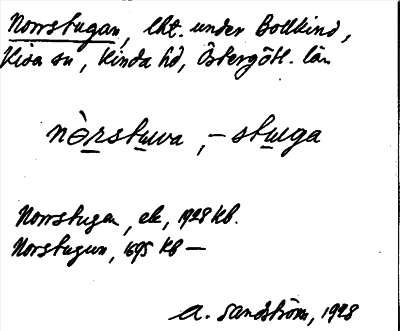 Norrstugan, lht. under Bollkind,
Kisa sn, Kinda hd, Östergötl. län
nòrstuva, -stuga
Norrstugan, ek, 1928 Kb.
Norstugun, 1695 Kb —
A. Sandström, 1928